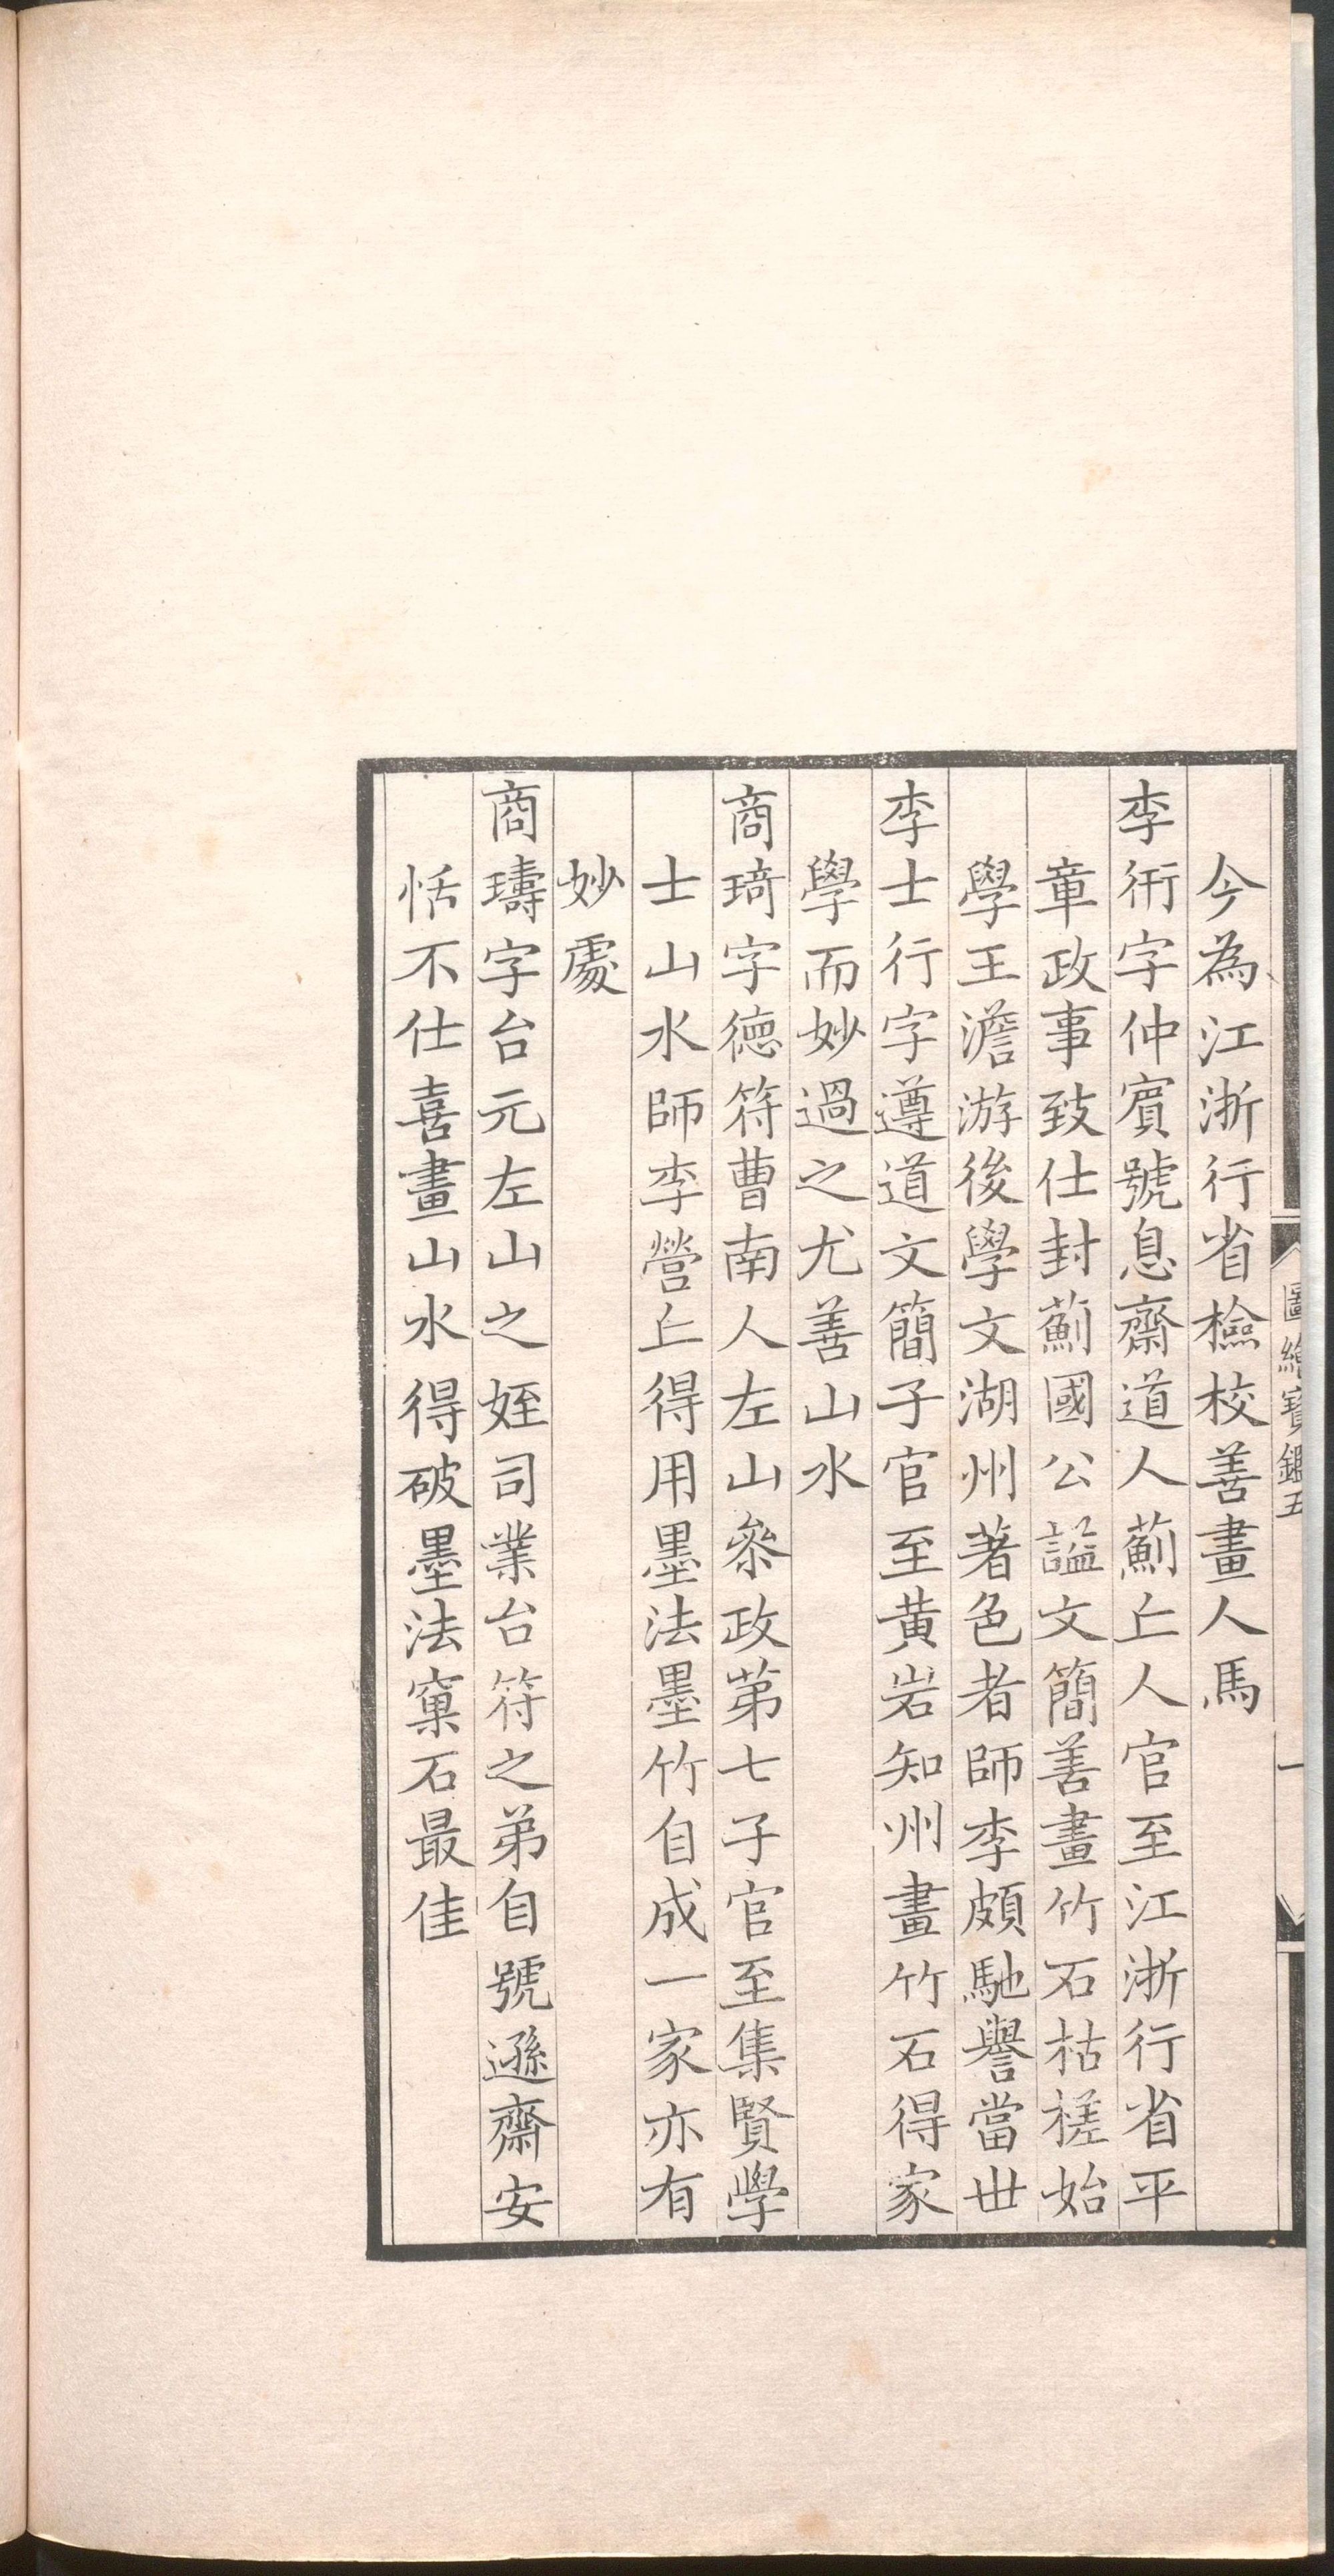 圖繪寶鑑五
一
今為江浙行省檢校善畫人馬
李衎字仲賔號息齋道人薊丘人官至江浙行省平
章政事致仕封薊國公謚文簡善畫竹石枯槎始
學王澹游後學文湖州著色者師李頗馳譽當世
李士行字遵道文簡子官至黃岩知州畫竹石得家
學而妙過之尤善山水
商琦字德符曹南人左山叅政第七子官至集賢學
士山水師李營丘得用墨法墨竹自成一家亦有
妙處
商璹字台元左山之姪司業台符之弟自號遜齋安
恬不仕喜畫山水得破墨法窠石最佳